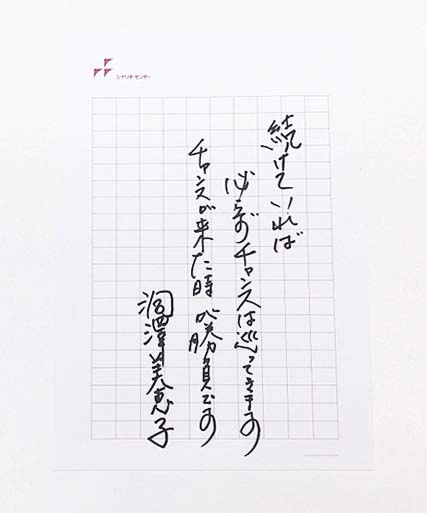 シナリオ・センター
続けていれば
必ずチャンスは巡ってきます
チャンスが来た時が勝負です
涸澤美恵子